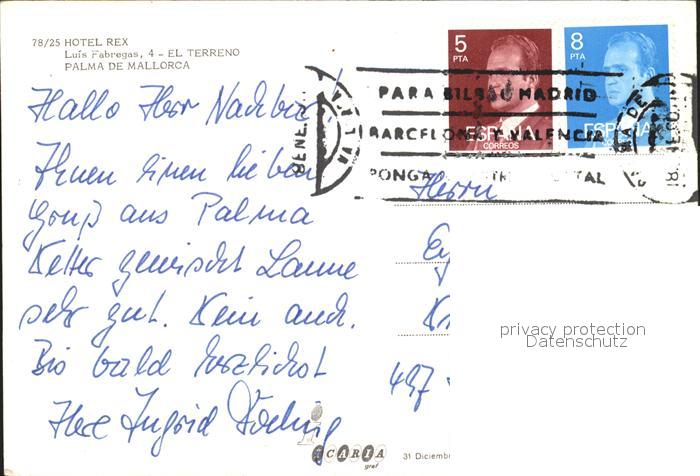 78/25 HOTEL REX
Luis Fabregas, 4 - EL TERRENO
PALMA DE MALLORCA
5
PTA
8
PTA
ESPAÑA
CORREOS
ESPAÑA
PARA BILBAO MADRID
BARCELONA Y VALENCIA
PONGA DISTRITO POSTAL
Hallo Herr Nachbar!
Ihnen einen lieben
Gruß aus Palma
Wetter gemischt Laune
sehr gut. Wein auch.
Bis bald herzlichst
Ihre Ingrid
Herrn
497
privacy protection
Datenschutz
ICARIA
graf
31 Diciemb